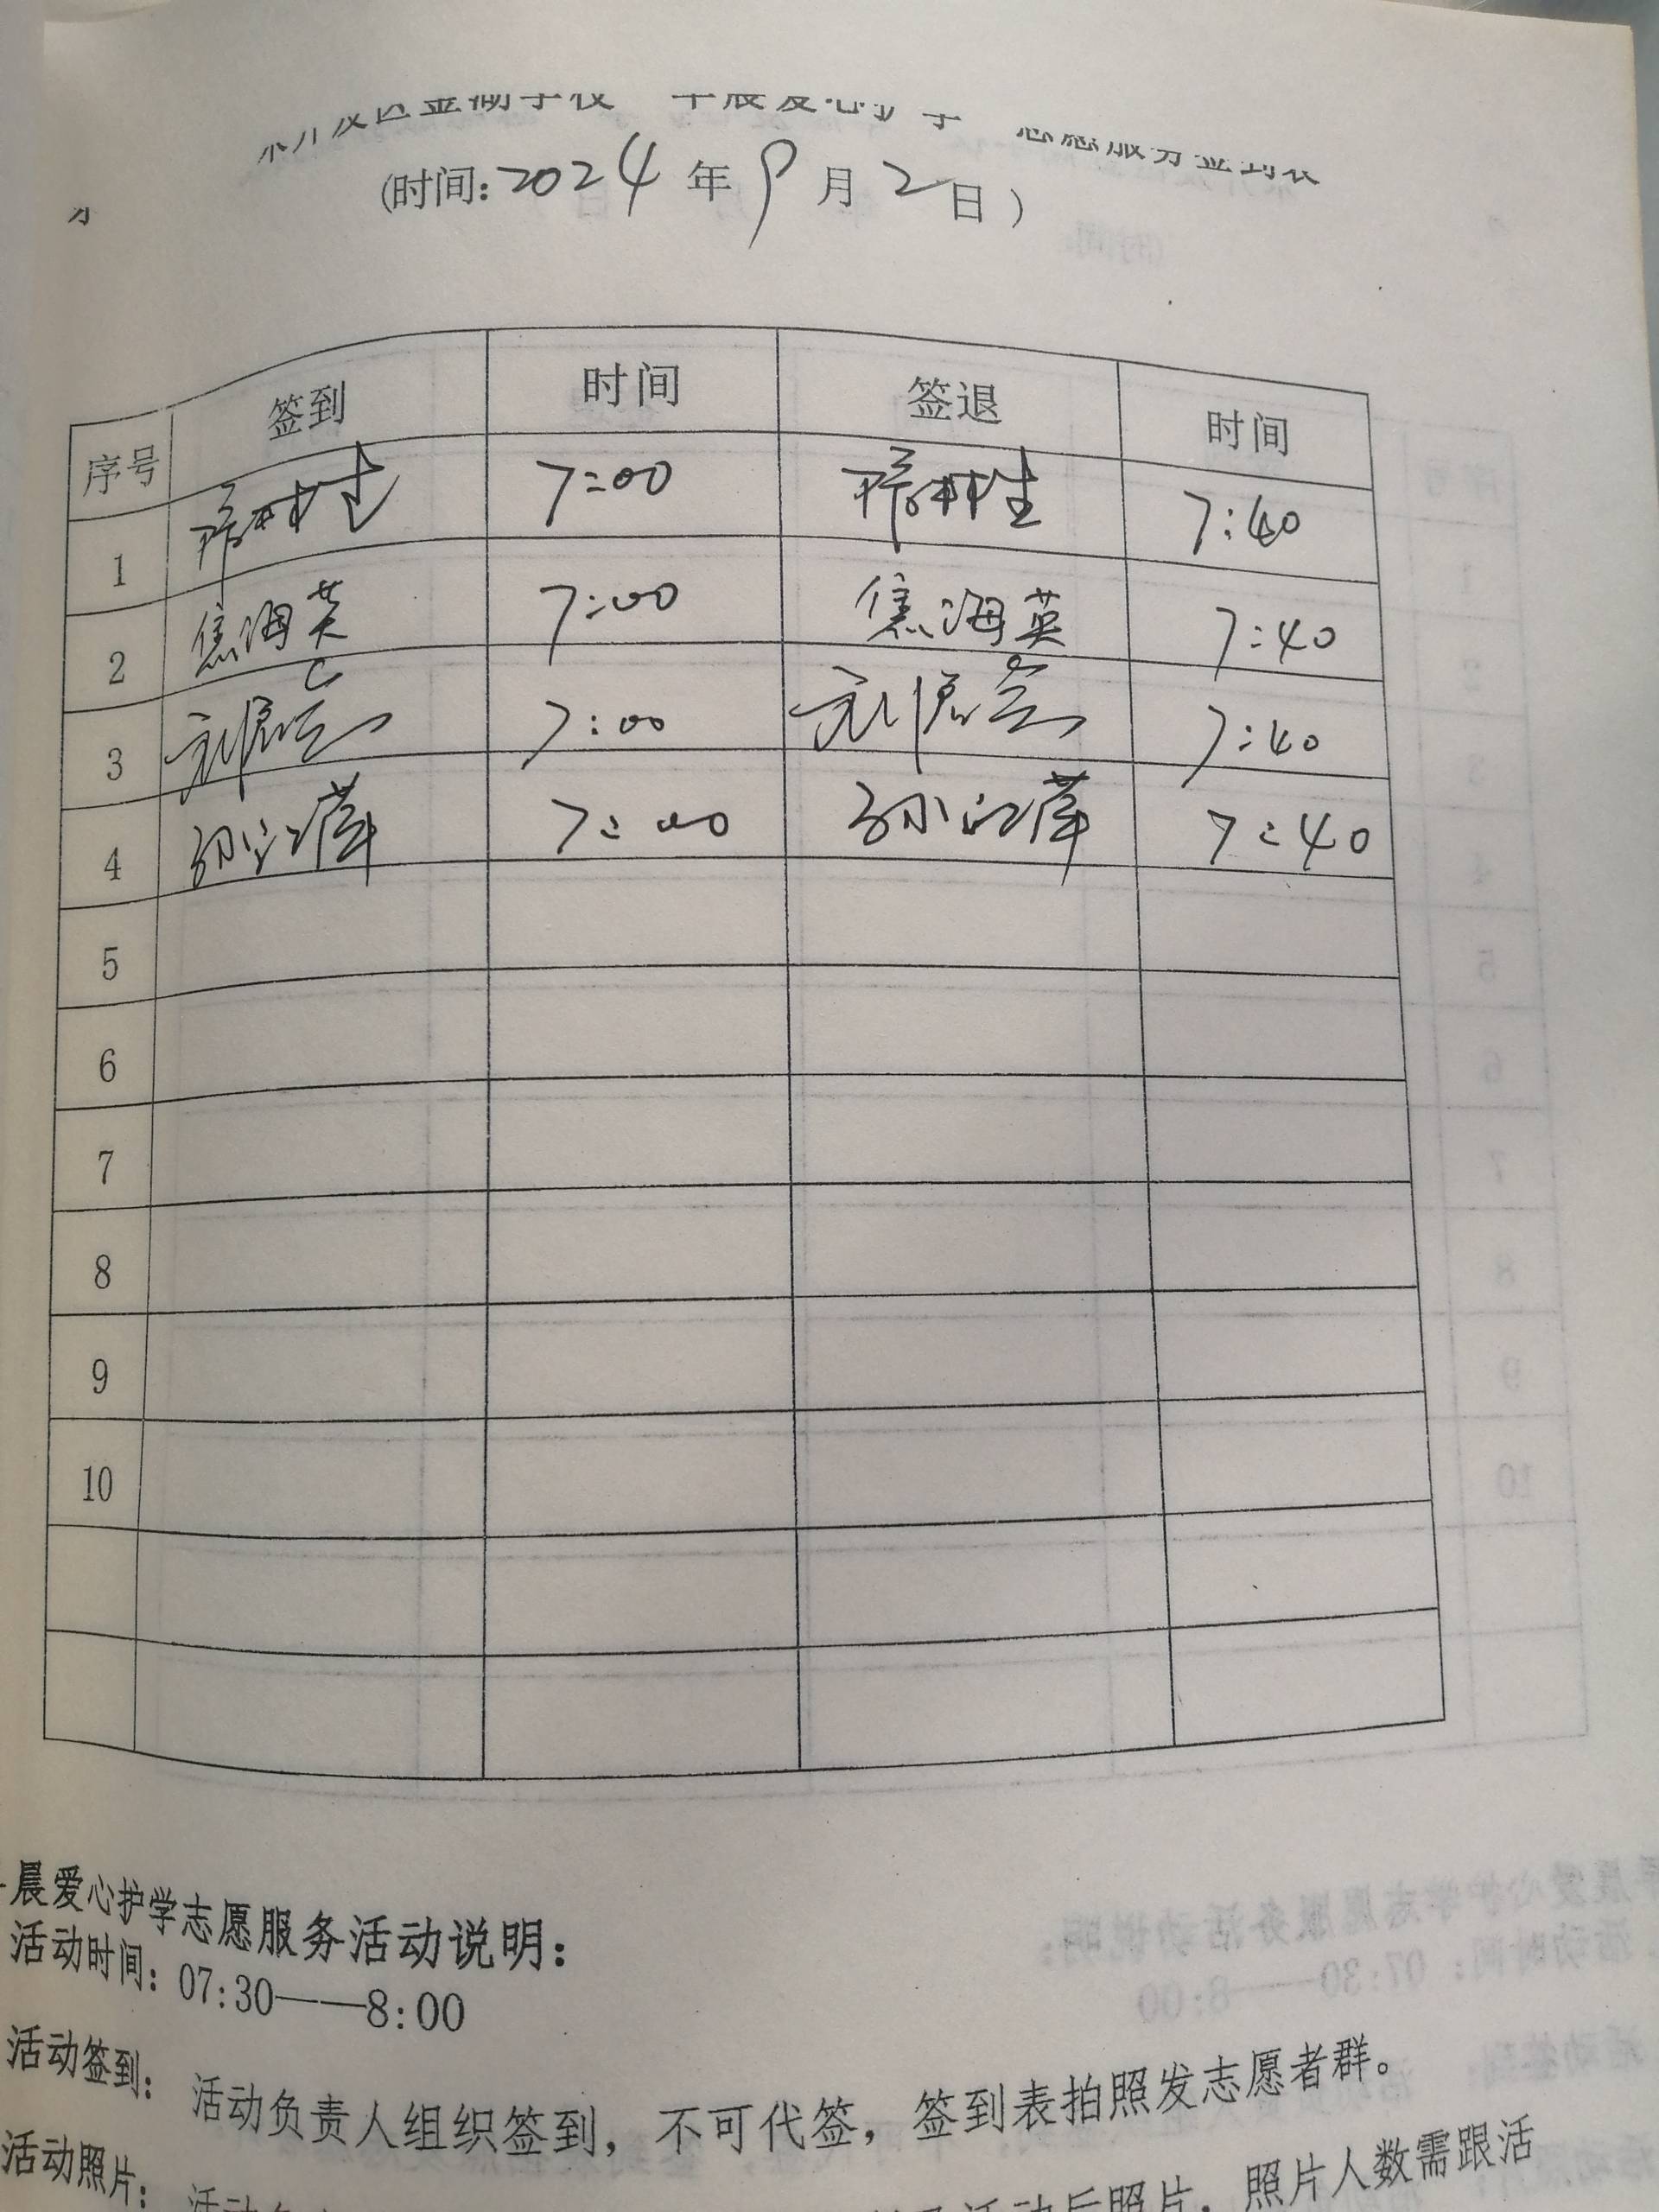 (时间:2024年9月2日)
序号 签到 时间 签退 时间
1 7:00 7:40
2 焦海英 7:00 焦海英 7:40
3 7:00 7:40
4 7:00 7:40
5
6
7
8
9
10
晨爱心护学志愿服务活动说明:
活动时间: 07:30——8:00
活动签到: 活动负责人组织签到,不可代签,签到表拍照发志愿者群。
活动照片: 活动 活动后照片,照片人数需跟活